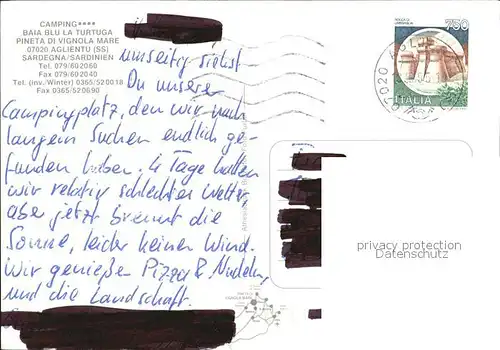 CAMPING****
BAIA BLU LA TURTUGA
PINETA DI VIGNOLA MARE
07020 AGLIENTU (SS)
SARDEGNA/SARDINIEN
Tel. 079/602060
Fax 079/602040
Tel. (inv./Winter) 0365/520018
Fax 0365/520690
umseitig siehst
Du unsere
Campingplatz, den wir nach
langem Suchen endlich ge-
funden haben. 4 Tage hatten
wir relativ schlechtes Wetter,
aber jetzt brennt die
Sonne, leider keinen Wind.
Wir genießen Pizza & Nudeln,
und die Landschaft.
750
ITALIA
07020 AGLIE
privacy protection
Datenschutz